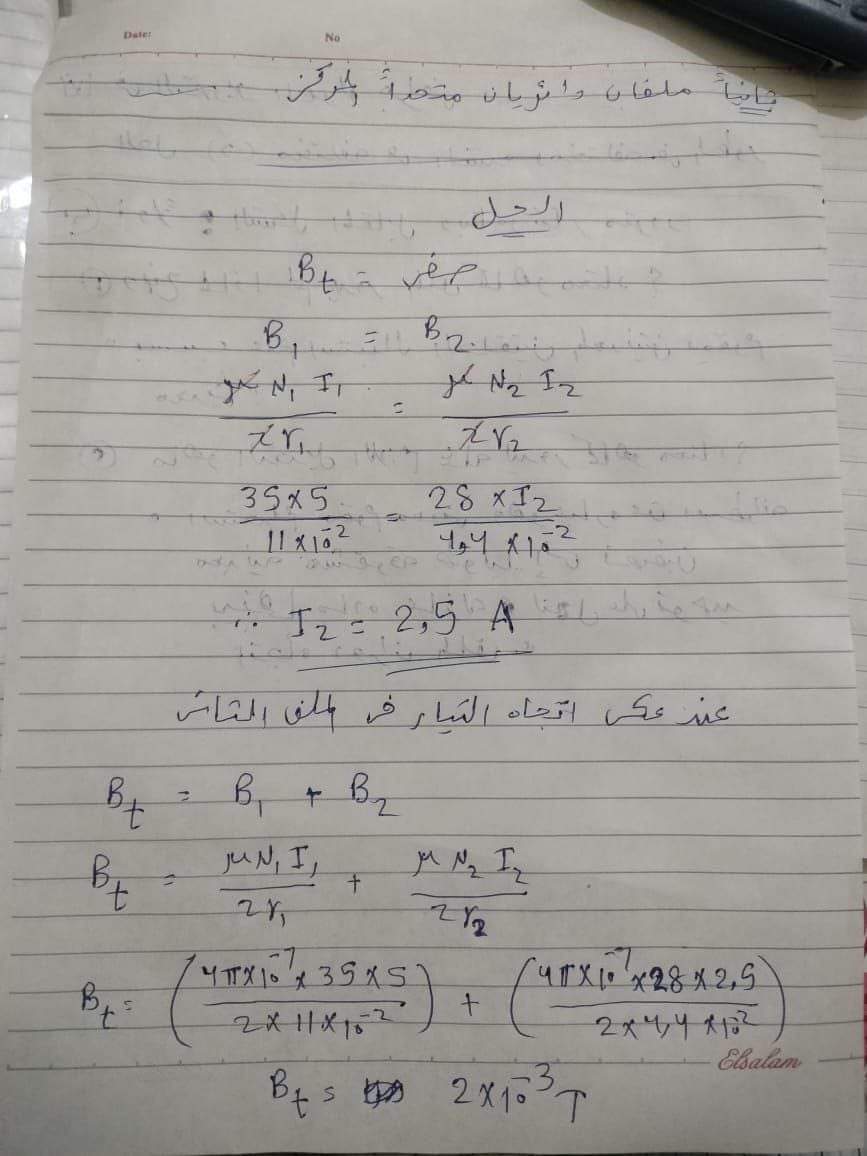 Date: No
ثانياً ملفان دائريان متحدا المركز
الحل
Bt = صفر
B1 = B2
μ N1 I1 / 2 r1 = μ N2 I2 / 2 r2
35 × 5 / 11 × 10^-2 = 28 × I2 / 4,4 × 10^-2
∴ I2 = 2,5 A
عند عكس اتجاه التيار فى الملف الثانى
Bt = B1 + B2
Bt = μ N1 I1 / 2 r1 + μ N2 I2 / 2 r2
Bt = (4π × 10^-7 × 35 × 5 / 2 × 11 × 10^-2) + (4π × 10^-7 × 28 × 2,5 / 2 × 4,4 × 10^-2)
Elsalam
Bt = 2 × 10^-3 T